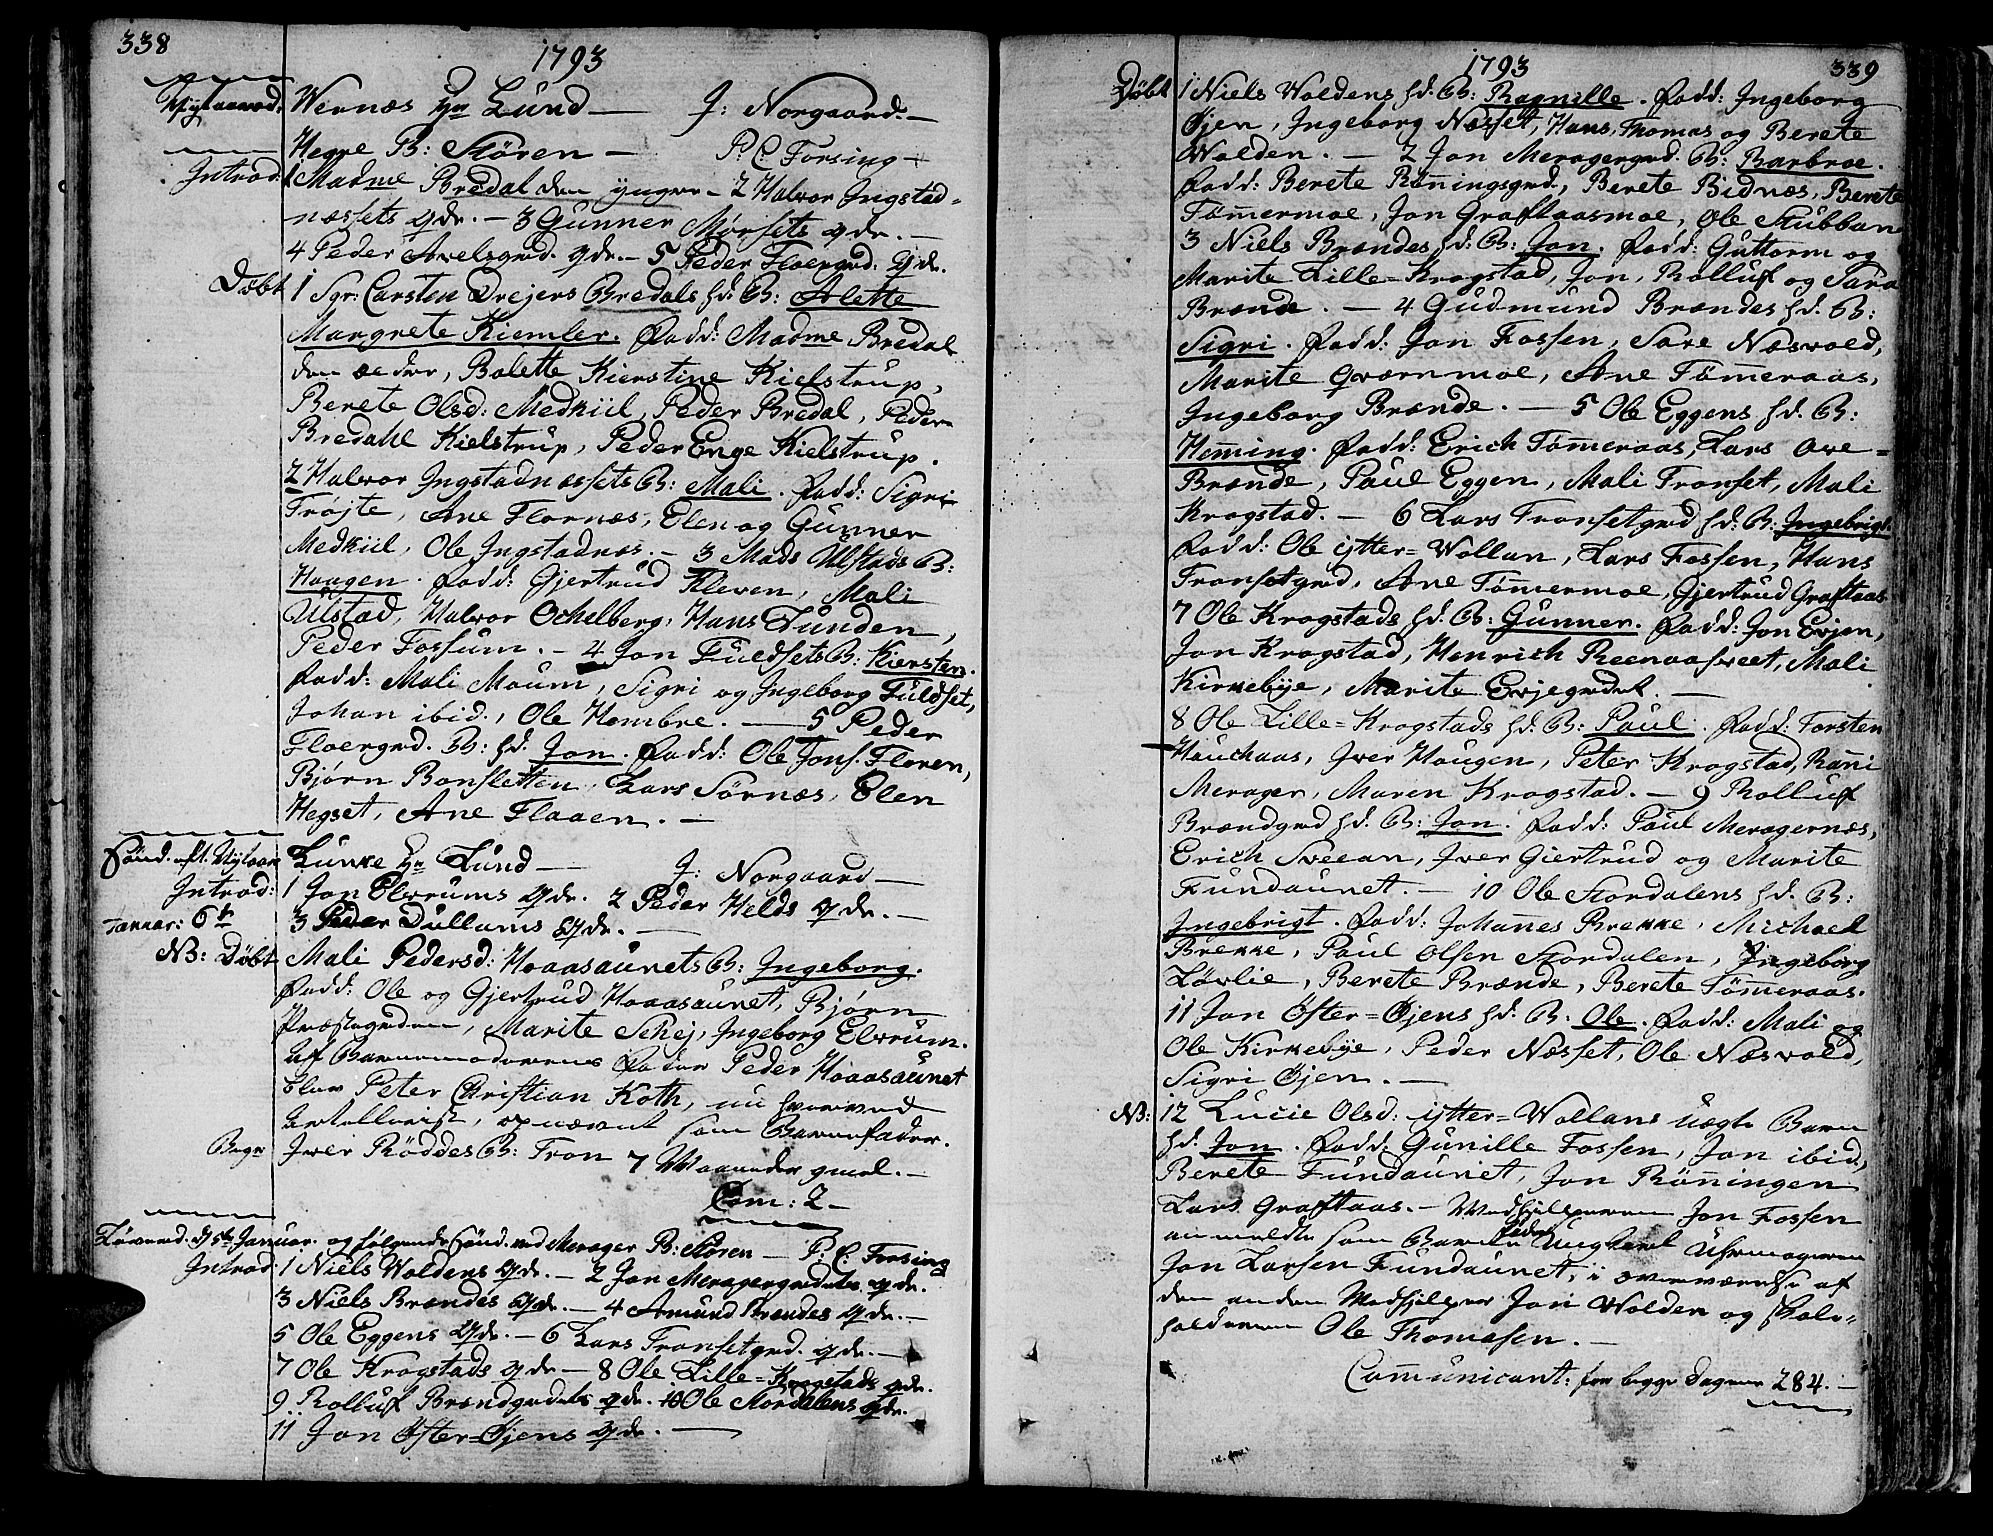 338
1793
Nytaarsd. Wernæs Hr Lund — J: Norgaard. —
Hegre B: Stören — P. C. Forsing —
Introd: 1 Madme Bredal den yngre — 2 Halvor Ingstad-
næssets qde. — 3 Gunner Mørsets qde. —
4 Peder Avelsgrd. qde. — 5 Peder Floergrd: qde.
Døbt 1 Sgr: Carsten Drejers Bredals hd. B: Alette
Margrete Kiemler. Fadd: Madme Bredal
den ældre, Balette Kierstine Kielstrup,
Berete Olsd: Medkiil, Peder Bredal, Peder
Bredahl Kielstrup, Peder Enge Kielstrup.
2 Halvor Ingstadnæssets B: Mali. Fadd: Sigri
Trøjte, Ane Flornæs, Elen og Gunner
Medkiil, Ole Ingstadnæs. — 3 Mads Ulstads B:
Haagen. Fadd: Gjertrud Kleven, Mali
Ulstad, Halvor Ochelberg, Hans Lunden,
Peder Fossum. — 4 Jon Fuldsets B: Kiersten.
Fadd: Mali Moum, Sigri og Ingeborg Fuldset,
Johan ibid., Ole Hembre. — 5 Peder
Floergrd. B: hd. Jon. Fadd: Ole Jons. Floren,
Bjørn Bonsletten, Lars Sørnæs, Elen
Hegset, Ane Flaaen. —
Sønd. aft. Nytaar Lunke Hr Lund — J: Norgaard —
Introd: 1 Jon Elvrums qde. 2 Peder Helds qde. —
Januar: 6te 3 Peder Dullums qde. —
NB: Døbt Mali Pedersd: Hoaasaunets B: Ingeborg.
Fadd: Ole og Gjertrud Hoaasaunet, Bjørn
Præstegrden, Marite Schej, Ingeborg Elvrum.
Af Barnemoderens Fader Peder Hoaasaunet
blev Peter Christian Koth, nu hververd
Artellerist, opnævnt som Barnefader.
Begr Iver Röddes B: Tron 7 Maaneder gmel. —
Com: 2 —
Løverd. d 5te Januar. og følgende Sønd. ved Merager B: Støren — P: C. Forsing
Introd: 1 Niels Woldens qde. — 2 Jon Meragergrdets qde.
3 Niels Brændes qde. — 4 Amund Brændes qde. —
5 Ole Eggens qde. — 6 Lars Fronsetgrd. qde. —
7 Ole Krogstads qde — 8 Ole Lille=Krogstads qde.
9. Rolluf Brændgrdets qde. 10 Ole Stordalens qde.
11 Jon Øfter=Øjens qde. —
1793
339
Døbt 1 Niels Woldens hd. B: Ragnille. Fadd: Ingeborg
Øjen, Ingeborg Næsset, Hans, Thomas og Berete
Wolden. — 2 Jon Meragergrd. B: Barbroe.
Fadd: Berete Röningsgrd., Berete Bidnæs, Berete
Tömermoe, Jon Graftaasmoe, Ole Stubban
3 Niels Brændes hd. B: Jon. Fadd: Guttorm og
Marite Lille=Krogstad, Jon, Rolluf og Sara
Brænde. — 4 Gudmund Brændes hd. B:
Sigri. Fadd: Jon Fossen, Sare Næswold,
Marite Qværnmoe, Ane Tömeraas,
Ingeborg Brænde. — 5 Ole Eggens hd. B:
Heming. Fadd: Erich Tömeraas, Lars Ove=
Brænde, Paul Eggen, Mali Fronset, Mali
Krogstad. — 6 Lars Fronsetgrd hd. B: Ingebrigt.
Fadd: Ole ytter=Wollan, Lars Fossen, Hans
Fronsetgrd, Ane Tömermoe, Gjertrud Graftaas
7 Ole Krogstads hd. B: Gunner. Fadd: Jon Evjen,
Jon Krogstad, Henrich Reenaasveet, Mali
Kirkebye, Marite Evjegrdet. —
8 Ole Lille=Krogstads hd. B: Paul. Fadd: Torsten
Hauchaas, Iver Haugen, Peter Krogstad, Rani
Merager, Maren Krogstad. — 9 Rolluf
Brændgrd hd. B: Jon. Fadd: Paul Meragernæs,
Erich Sveean, Iver Giertrud og Marite
Fundaunet. — 10 Ole Stordalens hd. B:
Ingebrigt. Fadd: Johanes Brekke, Michael
Brekke, Paul Olsen Stordalen, Ingeborg
Løvlie, Berete Brænde, Berete Tömeraas.
11 Jon Øfter=Øjens hd. B: Ole. Fadd: Mali og
Ole Kirkebye, Peder Næsset, Ole Næswold,
Sigri Øjen. —
NB: 12 Lucie Olsd: ytter=Wollans Uægte Barn
hd. Jon. Fadd: Gunille Fossen, Jon ibid,
Berete Fundaunet, Jon Röningen
Lars Graftaas. — Medhjelperen Jon Fossen
anmeldte som Barne Fader Ungkarl Uhrmageren
Jon Larsen Fundaunet, i overværelse af
den anden Medhjelper Jon Wolden og Skole-
holderen Ole Thomasen. —
Comunicant: for begge Dagene 284. —